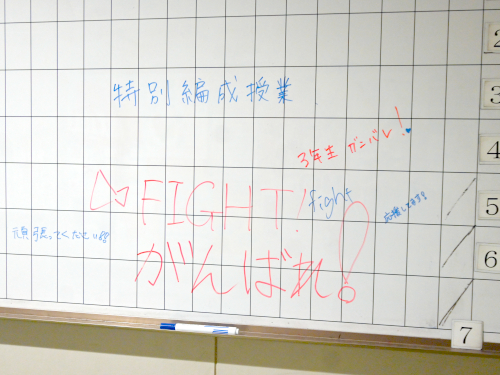 特別編成授業
3年生 ガンバレ!
FIGHT!
fight
応援してます!!
頑張ってください!!
がんばれ!
2
3
4
5
6
7